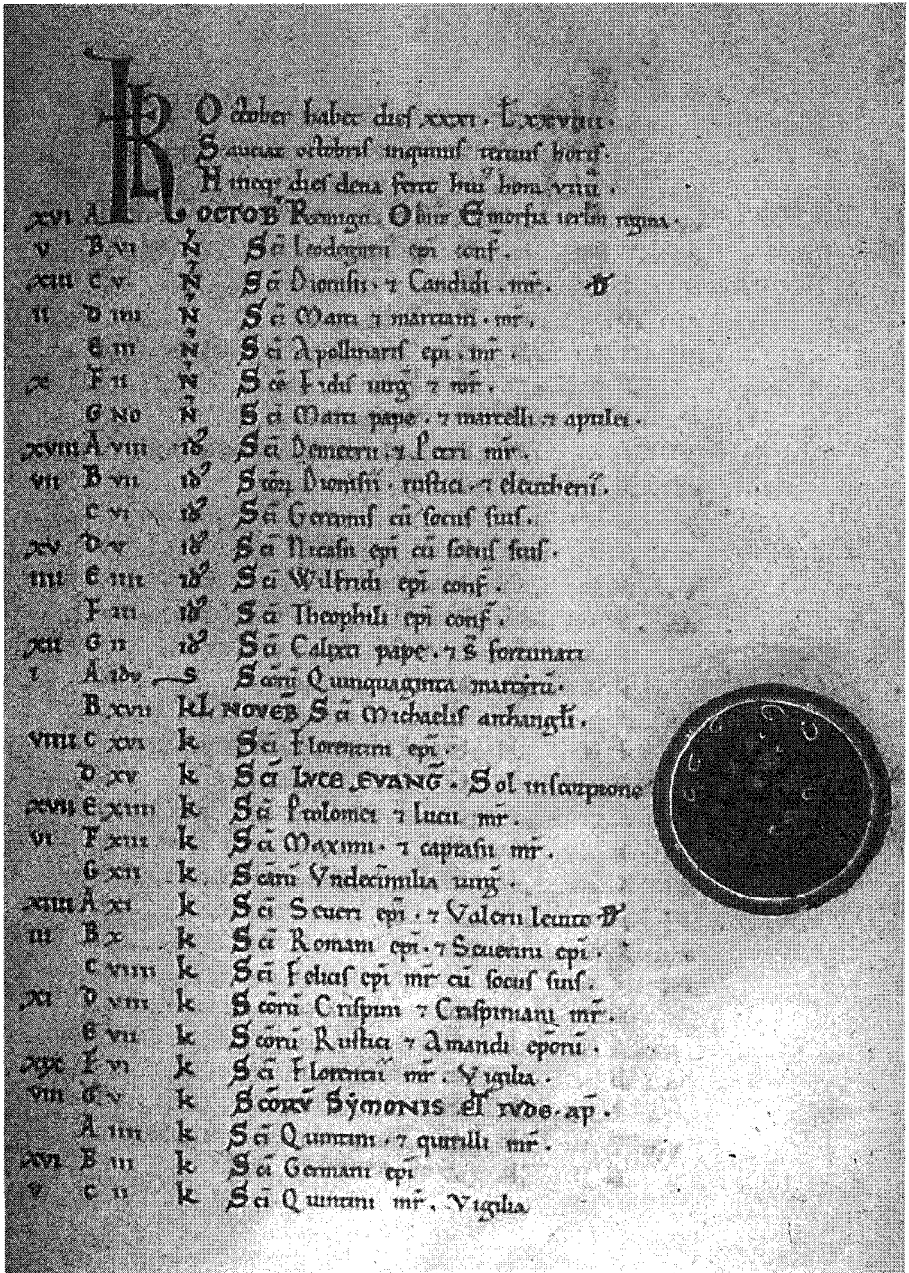 KL October habet dies xxxi. L xxviiii.
S auciat octobris inquinus tercius horis.
H incq; dies dena fert hui' hora viiii.
xvi A OCTOB' Remigii. Obiit Emorfia ierlm regina.
v B vi N Sci Leodegarii epi conf.
xiii C v N Sci Dionisii. ⁊ Candidi. mr.
ii D iiii N Sci Marci ⁊ marciani. mr.
E iii N Sci Apollinaris epi. mr.
x F ii N Sce Fidis uirg ⁊ mr.
G NO N Sci Marci pape. ⁊ marcelli. ⁊ apulei.
xviii A viii id' Sci Demetrii. ⁊ Petri mr.
vii B vii id' Scoɼ Dionisii. rustici. ⁊ eleutherii.
C vi id' Sci Gereonis cū sociis suis.
xv D v id' Sci Nicasii epi cū sociis suis.
iiii E iiii id' Sci Wilfridi epi conf.
F iii id' Sci Theophili epi conf.
xii G ii id' Sci Calixti pape. ⁊ S fortunati
i A idu s Scorū Quinquaginta martirū.
B xvii KL NOVEB Sci Michaelis archangli.
viiii C xvi k Sci Florentini epi.
D xv k Sci LVCE EVANG. Sol in scorpione
xvii E xiiii k Sci Ptolomei ⁊ lucii mr.
vi F xiii k Sci Maximi. ⁊ caprasii mr.
G xii k Scarū Vndecimilia uirg.
xiiii A xi k Sci Seueri epi. ⁊ Valerii leuite
iii B x k Sci Romani epi. ⁊ Seuerini epi.
C viiii k Sci Felicis epi mr cū sociis suis.
xi D viii k Scorū Crispini ⁊ Crispiniani mr.
E vii k Scorū Rustici ⁊ Amandi eporū.
xix F vi k Sci Florentii mr. Vigilia.
viii G v k Scorū SYMONIS ET IVDE. ap.
A iiii k Sci Quintini. ⁊ quirilli mr.
xvi B iii k Sci Germani epi
v C ii k Sci Quintini mr. Vigilia